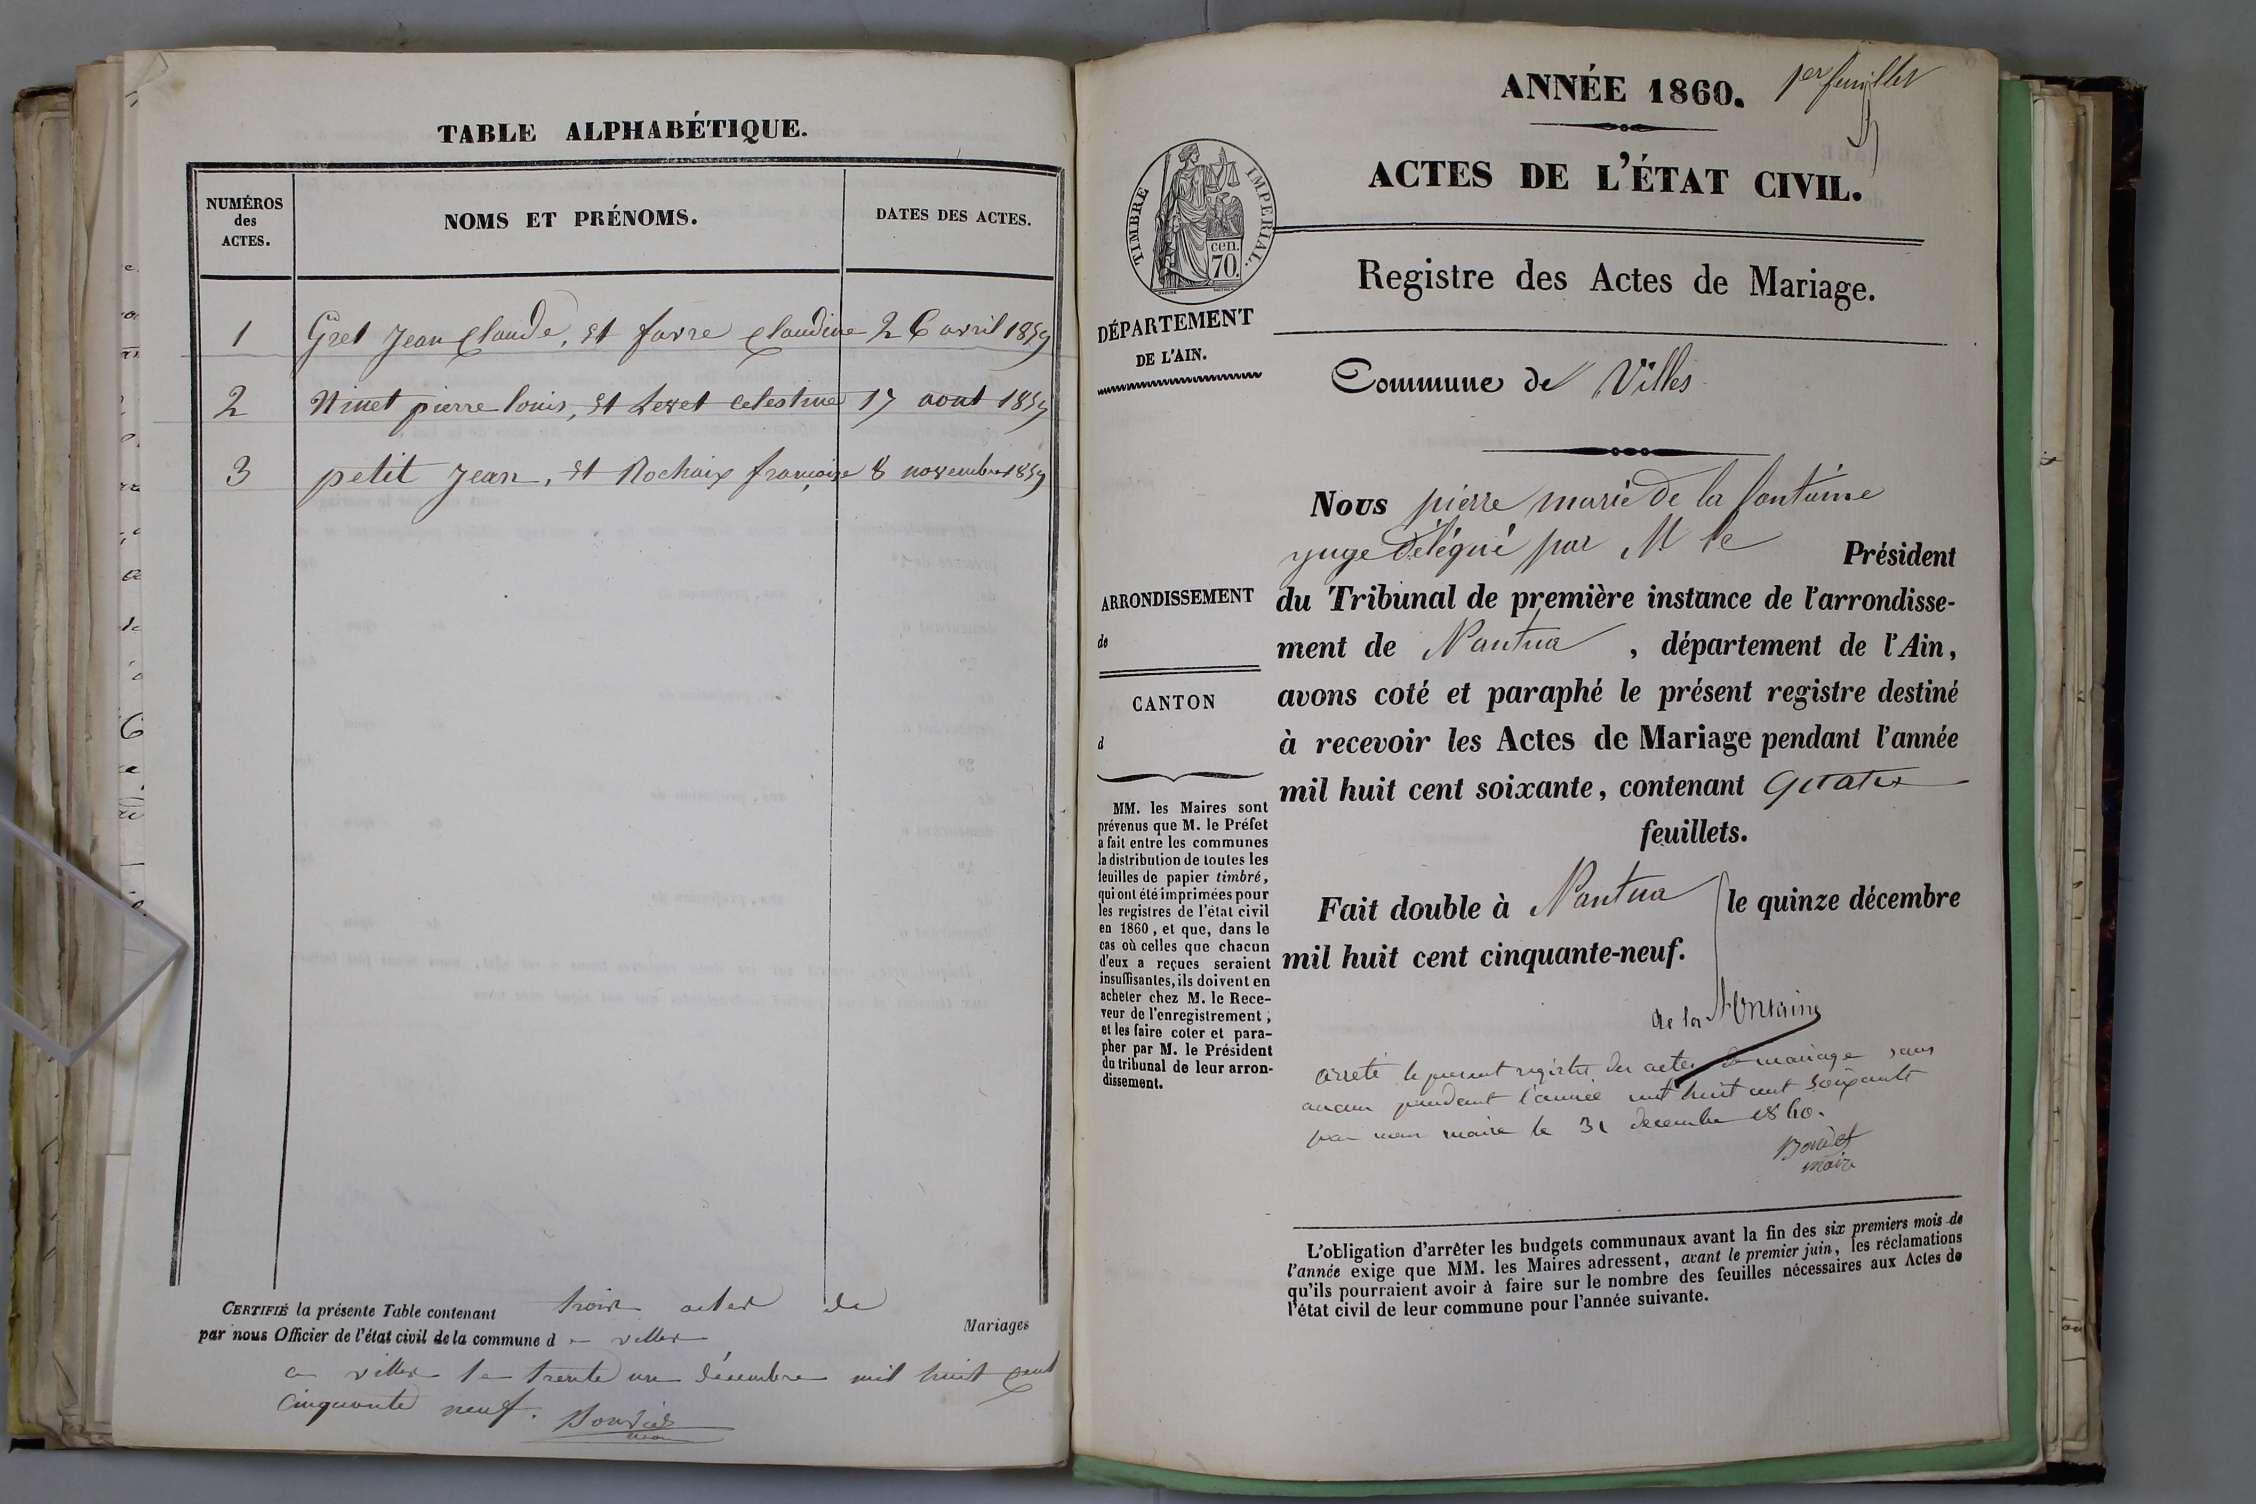 TABLE ALPHABÉTIQUE.
NUMÉROS
des
ACTES.
NOMS ET PRÉNOMS.
DATES DES ACTES.
1 Gret Jean Claude, et favre Claudine 26 avril 1859
2 Ninet pierre louis, et Levet Celestine 17 aout 1859
3 petit Jean, et Rochaix françoise 8 novembre 1859
CERTIFIÉ la présente Table contenant trois actes de
Mariages
par nous Officier de l'état civil de la commune d e villes
a villes le trente un décembre mil huit cent
cinquante neuf.
1er feuillet
ANNÉE 1860.
ACTES DE L'ÉTAT CIVIL.
TIMBRE IMPERIAL.
cen.
70.
Registre des Actes de Mariage.
DÉPARTEMENT
DE L'AIN.
Commune de Villes
ARRONDISSEMENT
de
CANTON
d
MM. les Maires sont
prévenus que M. le Préfet
a fait entre les communes
la distribution de toutes les
feuilles de papier timbré,
qui ont été imprimées pour
les registres de l'état civil
en 1860, et que, dans le
cas où celles que chacun
d'eux a reçues seraient
insuffisantes, ils doivent en
acheter chez M. le Rece-
veur de l'enregistrement;
et les faire coter et para-
pher par M. le Président
du tribunal de leur arron-
dissement.
Nous pierre marie de la fontaine
juge délégué par M le Président
du Tribunal de première instance de l'arrondisse-
ment de Nantua, département de l'Ain,
avons coté et paraphé le présent registre destiné
à recevoir les Actes de Mariage pendant l'année
mil huit cent soixante, contenant quatre
feuillets.
Fait double à Nantua le quinze décembre
mil huit cent cinquante-neuf.
de la Fontaine
arreté le present registre des actes de mariage sans
aucun pendant l'année mil huit cent soixante
par nous maire le 31 decembre 1860.
maire
L'obligation d'arrêter les budgets communaux avant la fin des six premiers mois de
l'année exige que MM. les Maires adressent, avant le premier juin, les réclamations
qu'ils pourraient avoir à faire sur le nombre des feuilles nécessaires aux Actes de
l'état civil de leur commune pour l'année suivante.